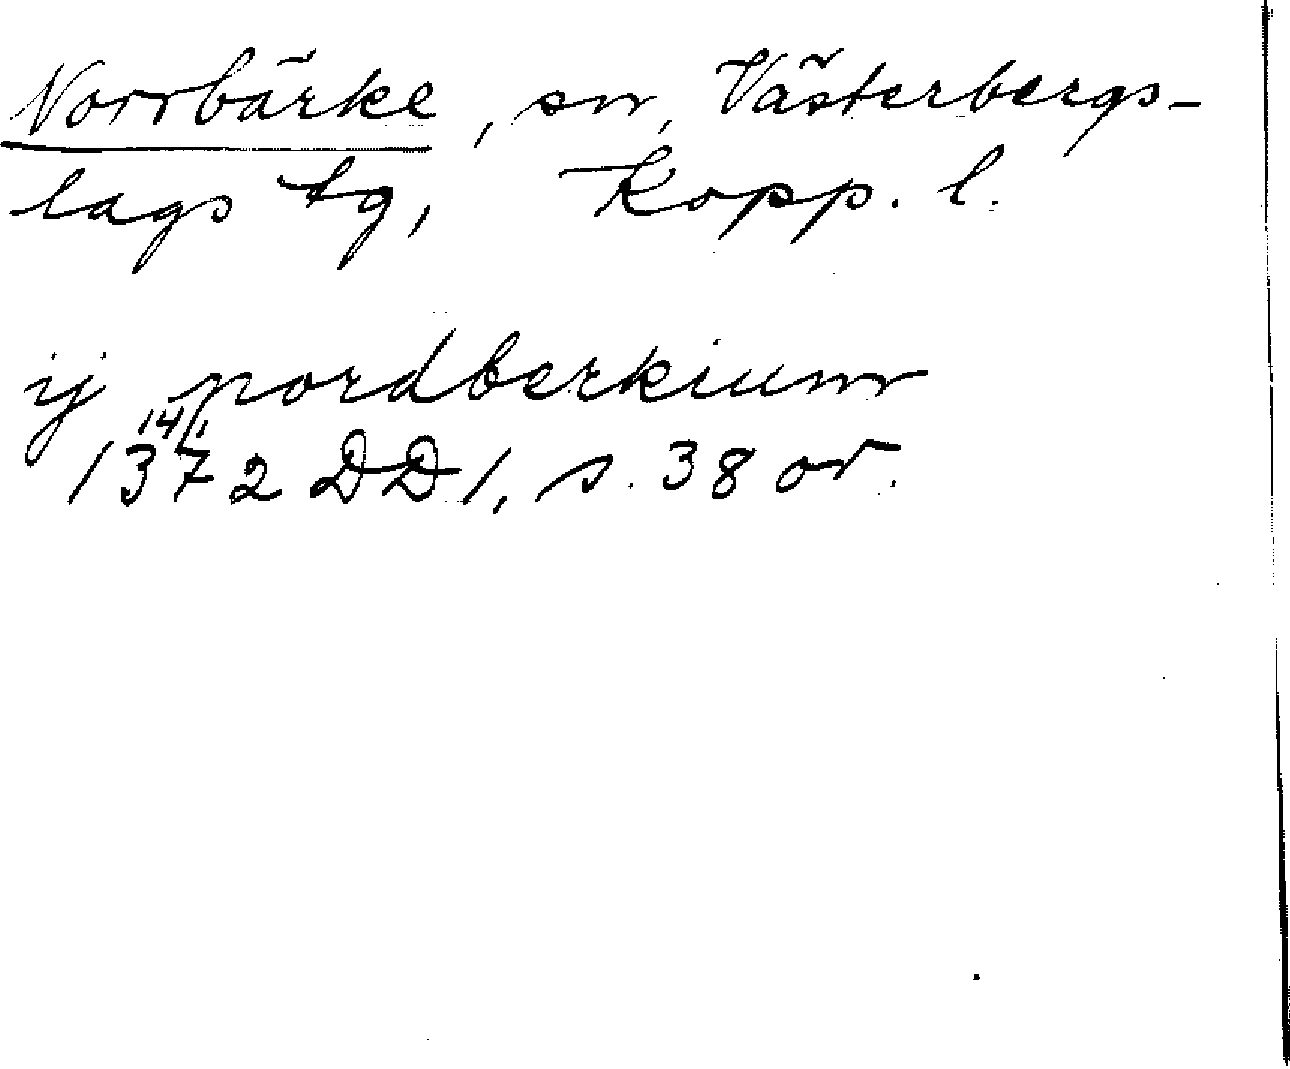 Norrbärke, sn, Västerbergs-
lags tg, Kopp. l.
ij nordberkium
14/1
1372 DD 1, s. 38 or.